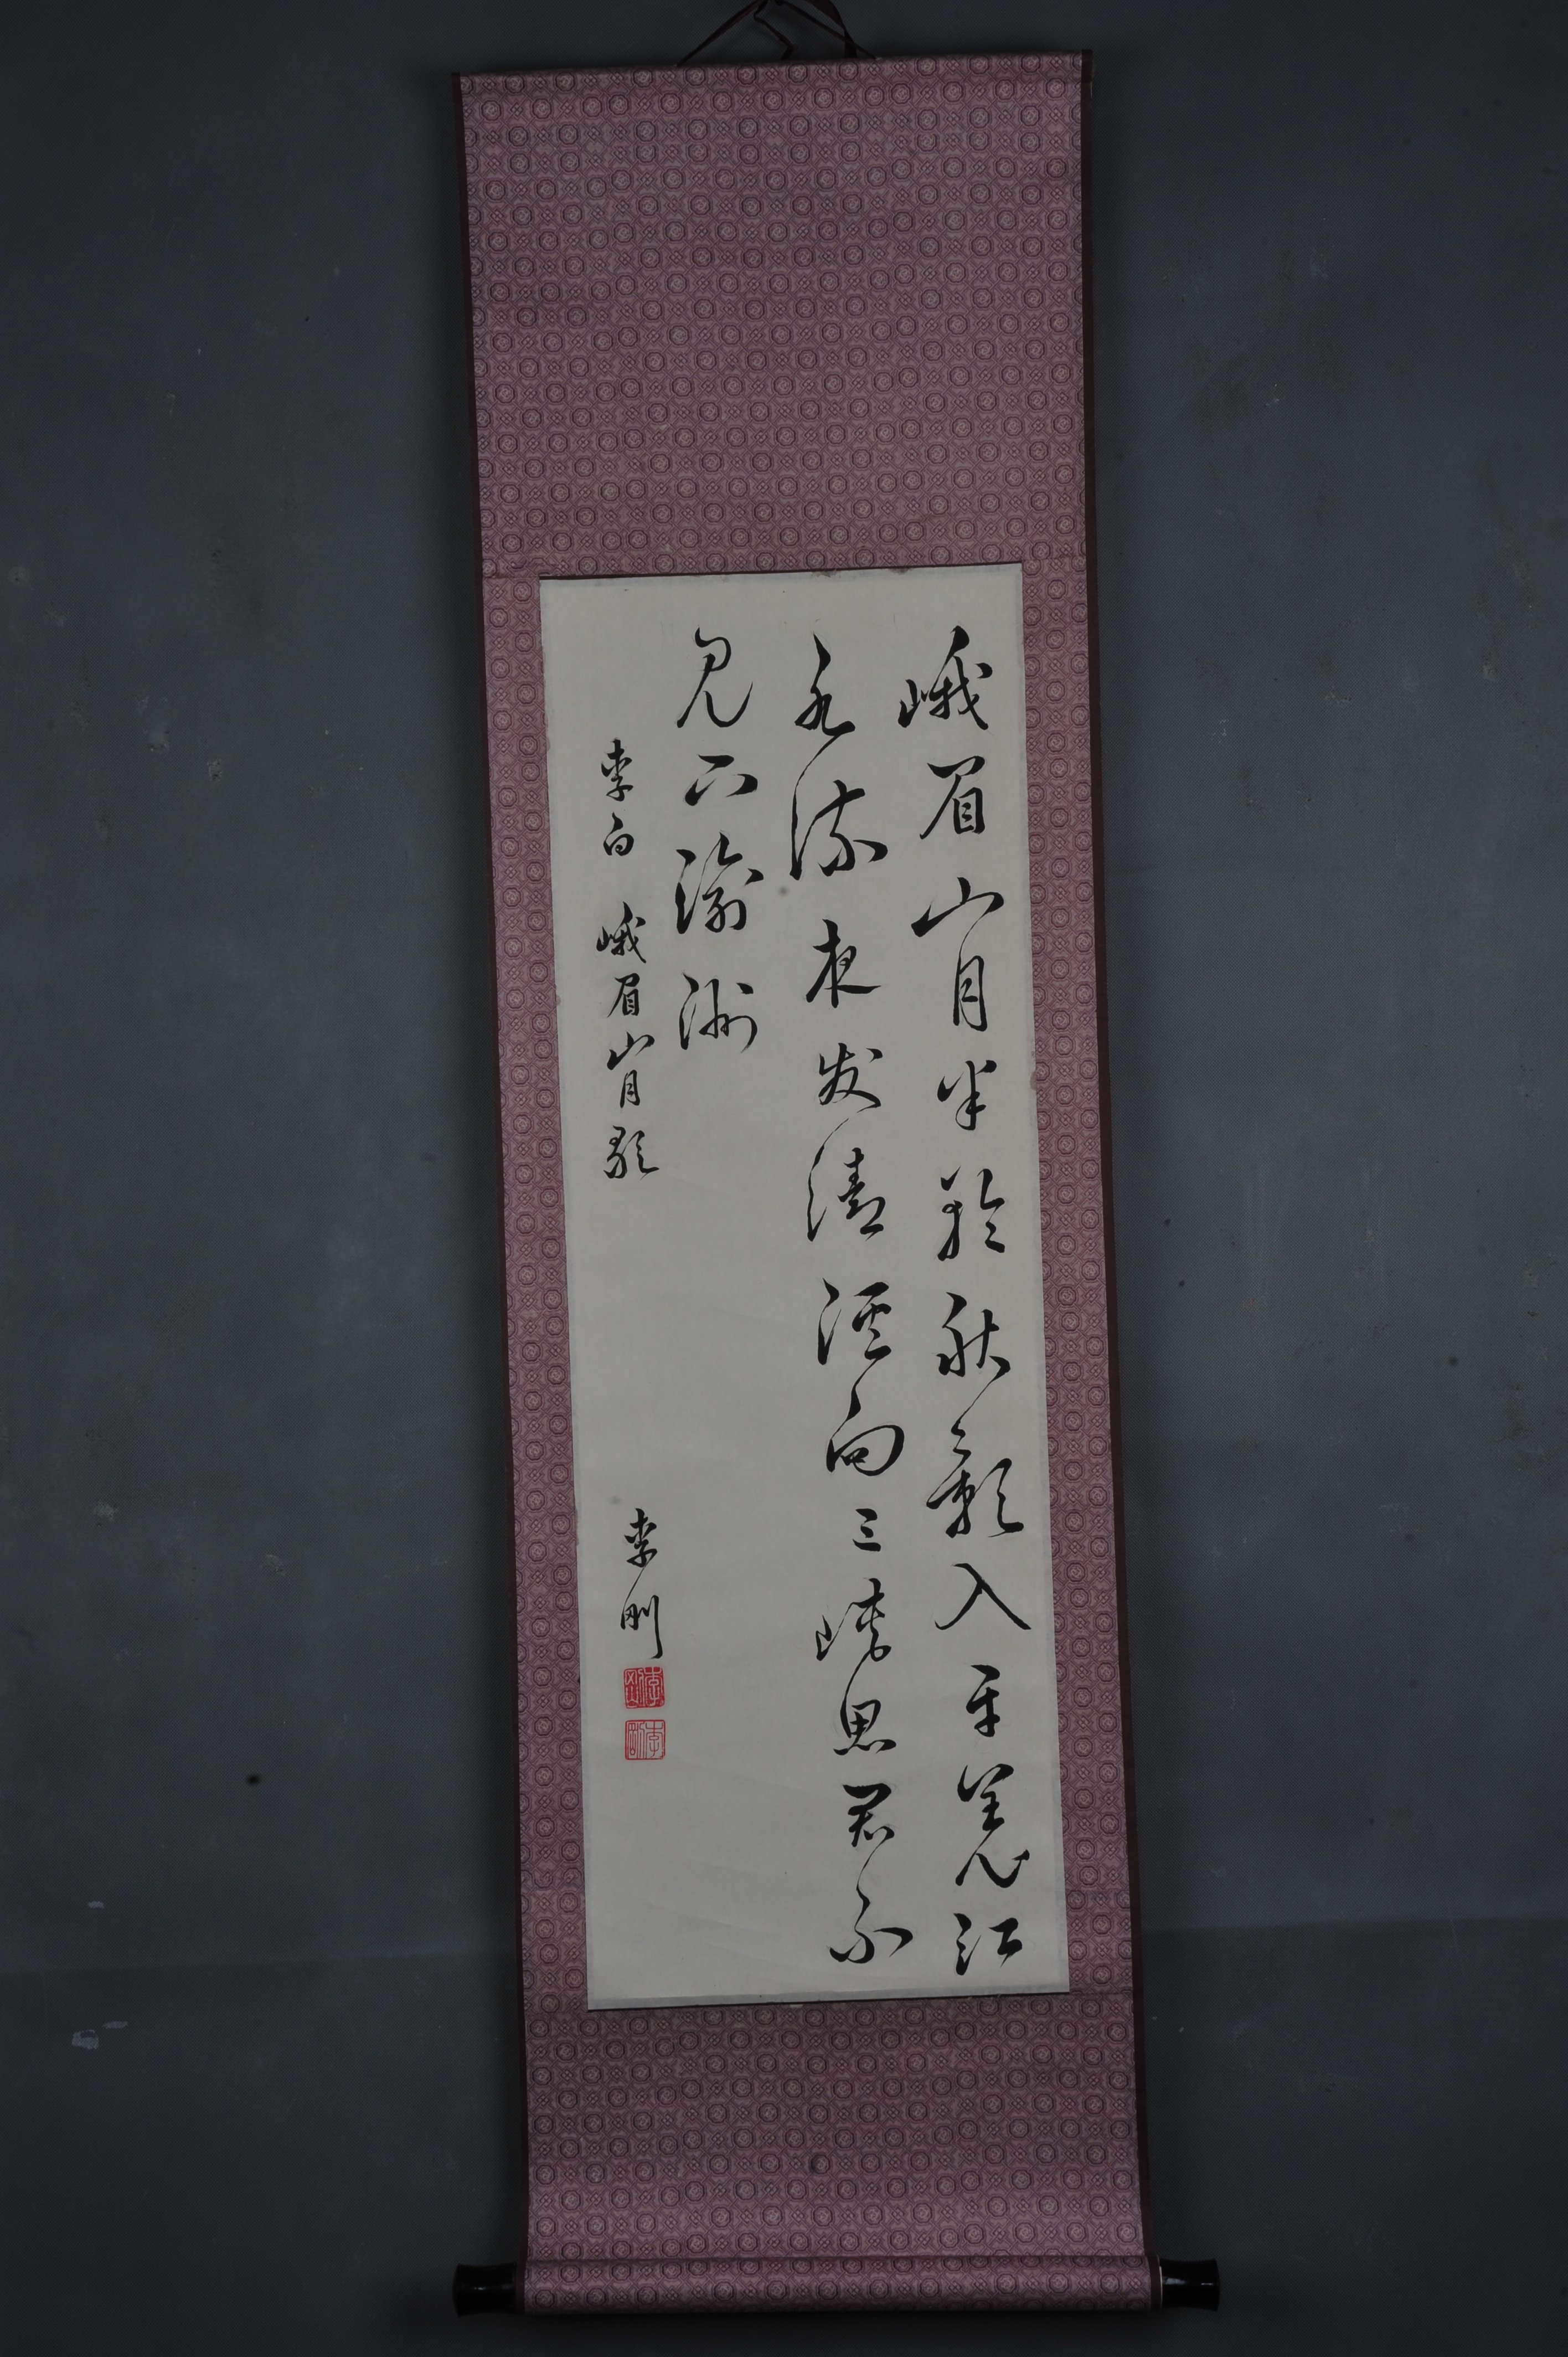 峨眉山月半轮秋影入平羌江
水流夜发清溪向三峡思君不
见下渝洲
李白 峨眉山月歌
李刚